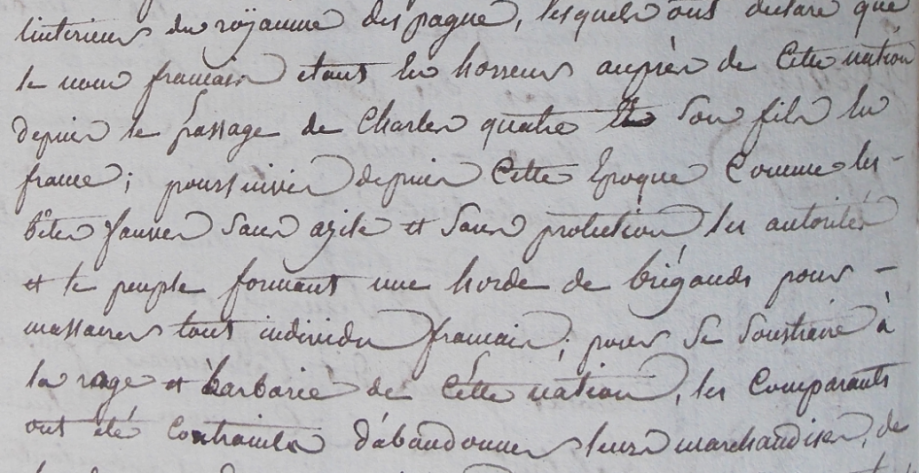 l'interieur du roÿaume despagne, lesquels ont declaré que
le nom francais etant en horreur auprès de Cette nation
depuis le passage de Charles quatre et Son fils en
france; poursuivies depuis Cette Epoque Comme les-
bêtes fauves Sans azile et Sans protection les autorités
et le peuple formant une horde de brigands pour -
massacrer tout individu francais; pour Se Soustraire à
la rage et barbarie de Cette nation, les Comparants
ont été Contraints d'abandonner leurs marchandises, de